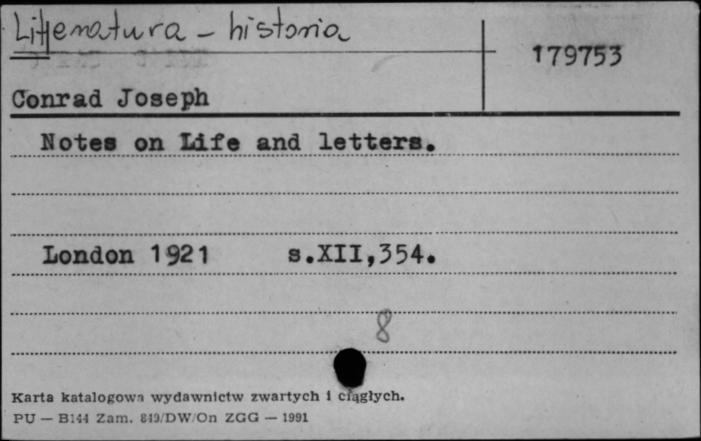 Litteratura - historia
179753
Conrad Joseph
Notes on Life and letters.
London 1921 s.XII,354.
8
Karta katalogowa wydawnictw zwartych i ciągłych.
PU — B144 Zam. 849/DW/On ZGG — 1991